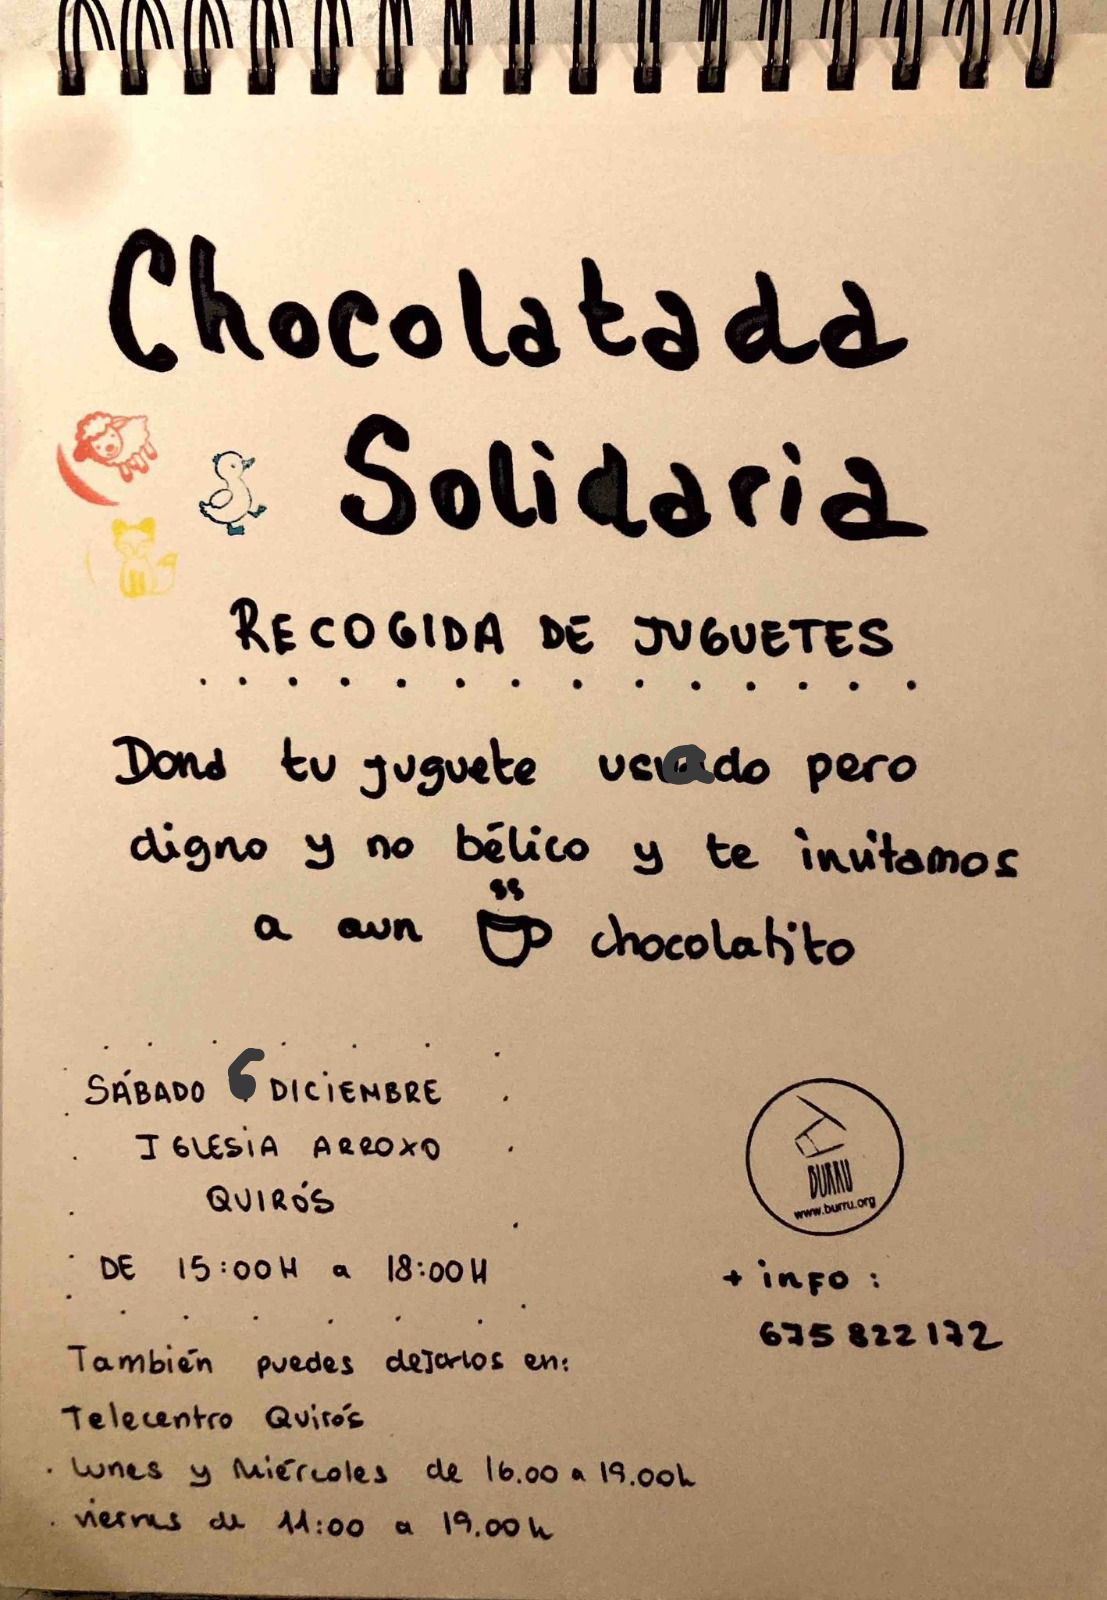 Chocolatada
Solidaria
RECOGIDA DE JUGUETES
Dona tu juguete usado pero
digno y no bélico y te invitamos
a aun chocolatito
SÁBADO 6 DICIEMBRE
IGLESIA ARROXO
QUIRÓS
DE 15:00H a 18:00H
BURRU
www.burru.org
+ info :
675 822 172
También puedes dejarlos en:
Telecentro Quirós
· Lunes y Miércoles de 16.00 a 19.00h
· viernes de 11:00 a 19.00h